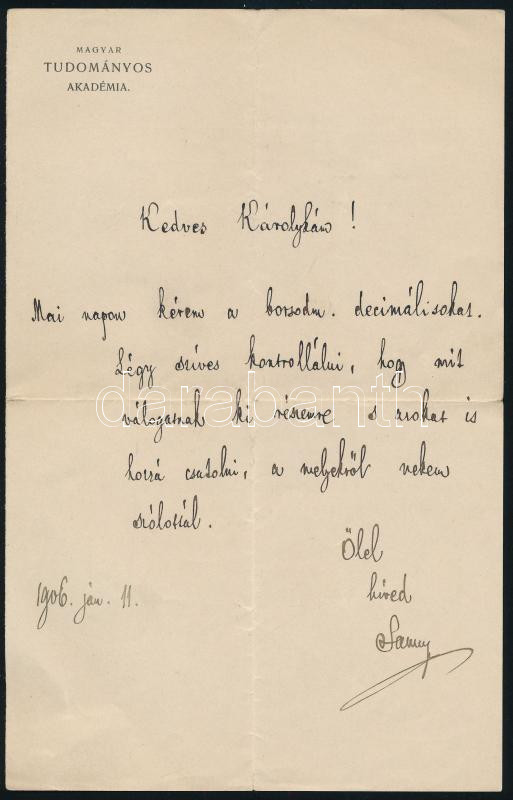 MAGYAR
TUDOMÁNYOS
AKADÉMIA.
Kedves Károlykám!
Mai napon kérem a borsodm. decimálisokat.
Légy szíves kontrollálni, hogy mit
darabanth
válogatnak ki részemre s azokat is
hozzá csatolni, a melyekről nekem
szólottál.
Ölel
híved
1906. ján. 11.
Samu